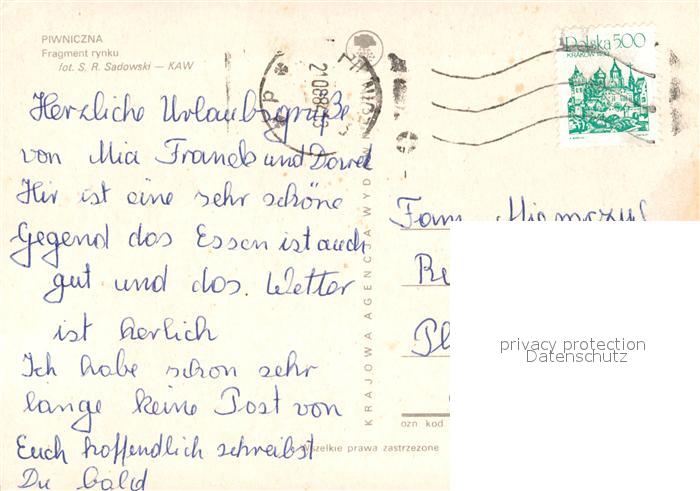 PIWNICZNA
Fragment rynku
fot. S. R. Sadowski — KAW
Herzliche Urlaubsgrüße
von Mia Franek und
Hir ist eine sehr schöne
Gegend das Essen ist auch
gut und das. Wetter
ist herlich
Ich habe schon sehr
lange keine Post von
Euch hoffendlich schreibst
Du bald
KRAJOWA AGENCJA WYD
Polska 5.00
KRAKÓW
Fam.
Re
Pl
privacy protection
Datenschutz
ozn kod
wszelkie prawa zastrzeżone